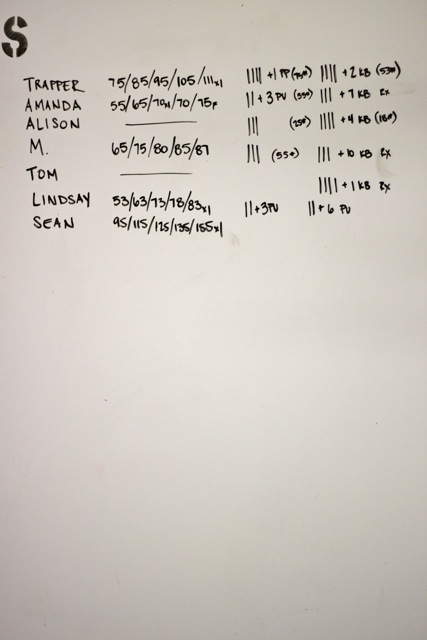 S
TRAPPER 75/85/95/105/111x1 |||| +1 PP (75#) |||| +2 KB (53#)
AMANDA 55/65/70x1/70/75F || +3 PU (55#) ||| +7 KB Rx
ALISON ——— ||| (25#) |||| +4 KB (18#)
M. 65/75/80/85/87 ||| (55#) ||| +10 KB Rx
TOM ——— |||| +1 KB Rx
LINDSAY 53/63/73/78/83x1 || +3PU || +6 PU
SEAN 95/115/125/135/155x1